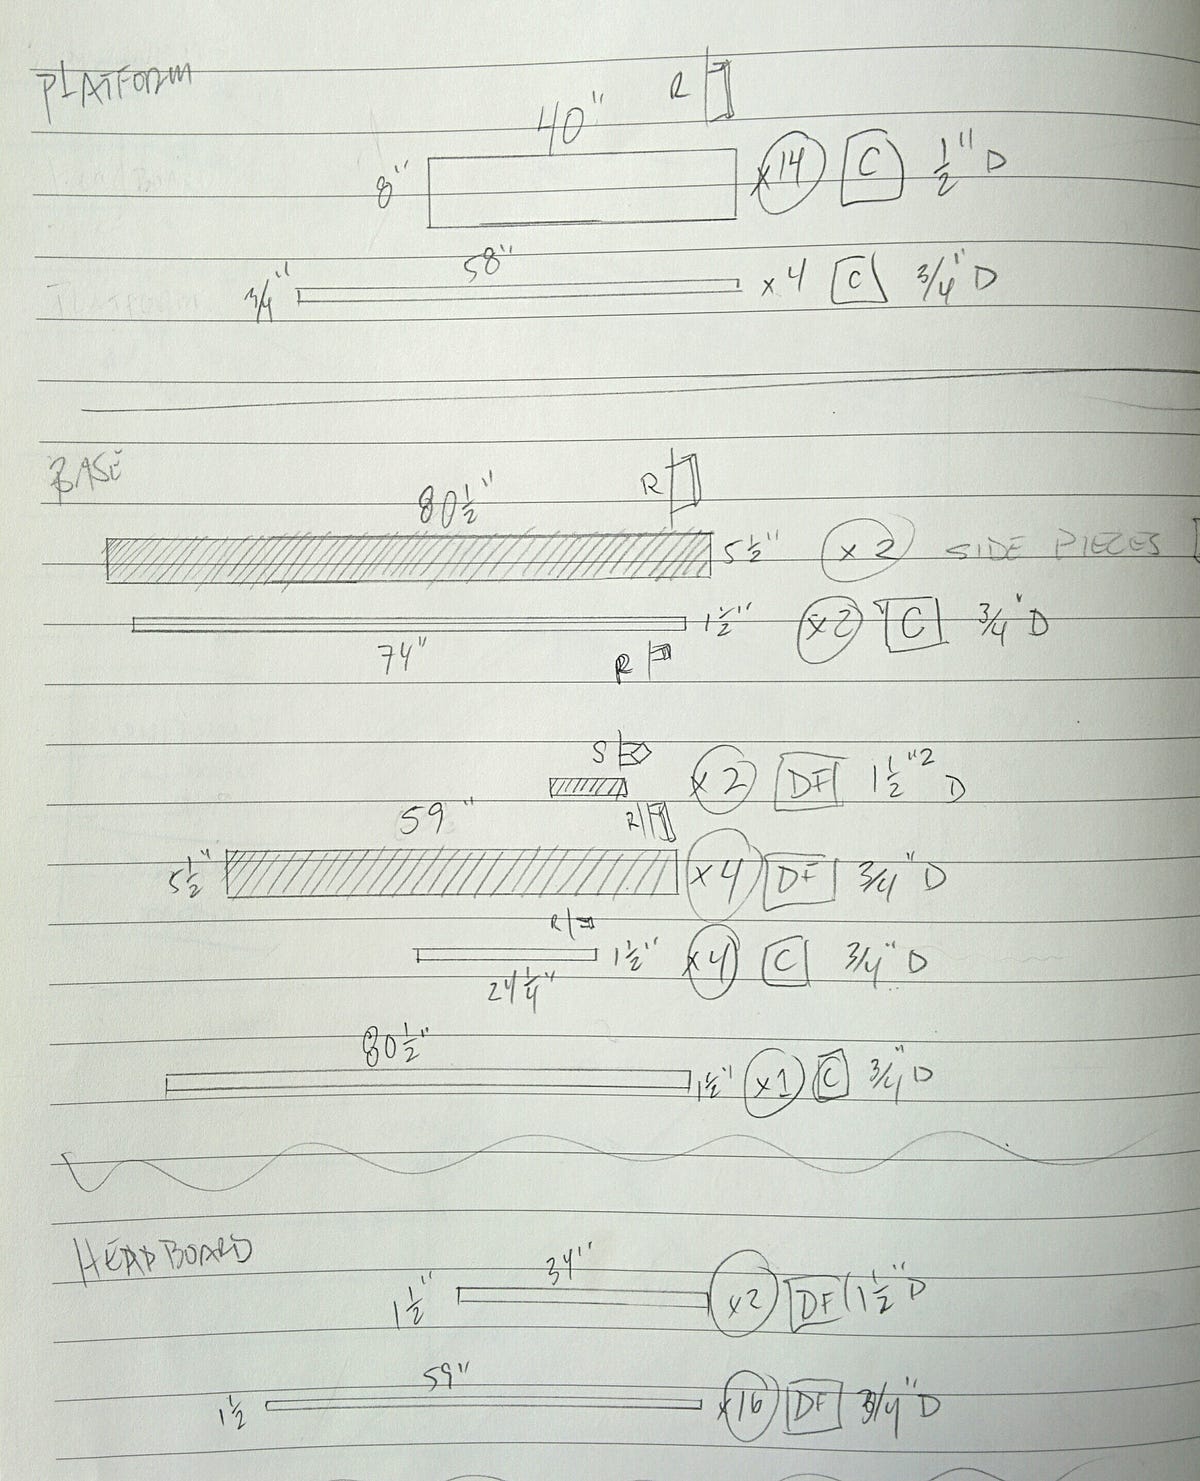 PLATFORM
R
40"
8" x14 C 1/2" D
58"
3/4" x 4 C 3/4" D
BASE
R
80 1/2"
5 1/2" x 2 SIDE PIECES
1 1/2" x2 C 3/4" D
74"
R
S
x 2 DF 1 1/2"2 D
59"
R
5 1/2" x4 DF 3/4" D
R
1 1/2" x4 C 3/4" D
24 1/4"
80 1/2"
1 1/2" x1 C 3/4" D
HEADBOARD
34"
1 1/2" x2 DF 1 1/2" D
59"
1 1/2 x16 DF 3/4" D